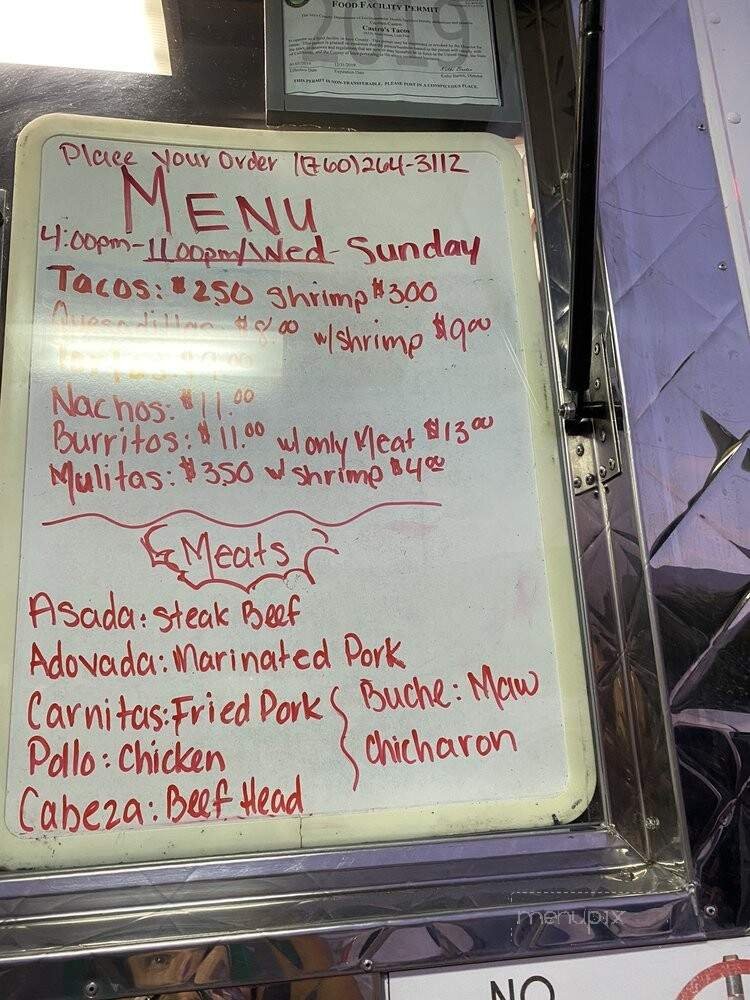 FOOD FACILITY PERMIT
Castro's Tacos
2019
Effective Date
Expiration Date
THIS PERMIT IS NON-TRANSFERABLE. PLEASE POST IN A CONSPICUOUS PLACE.
Place your Order 1(760)264-3112
MENU
4:00pm-11:00pm/Wed-Sunday
Tacos: $2.50 shrimp $3.00
Quesadillas $8.00 w/shrimp $9.00
Tortas $9.00
Nachos: $11.00
Burritos: $11.00 w/only Meat $13.00
Mulitas: $3.50 w/shrimp $4.00
Meats
Asada: Steak Beef
Adovada: Marinated Pork
Carnitas: Fried Pork
Pollo: Chicken
Cabeza: Beef Head
Buche: Maw
chicharon
menupix
NO